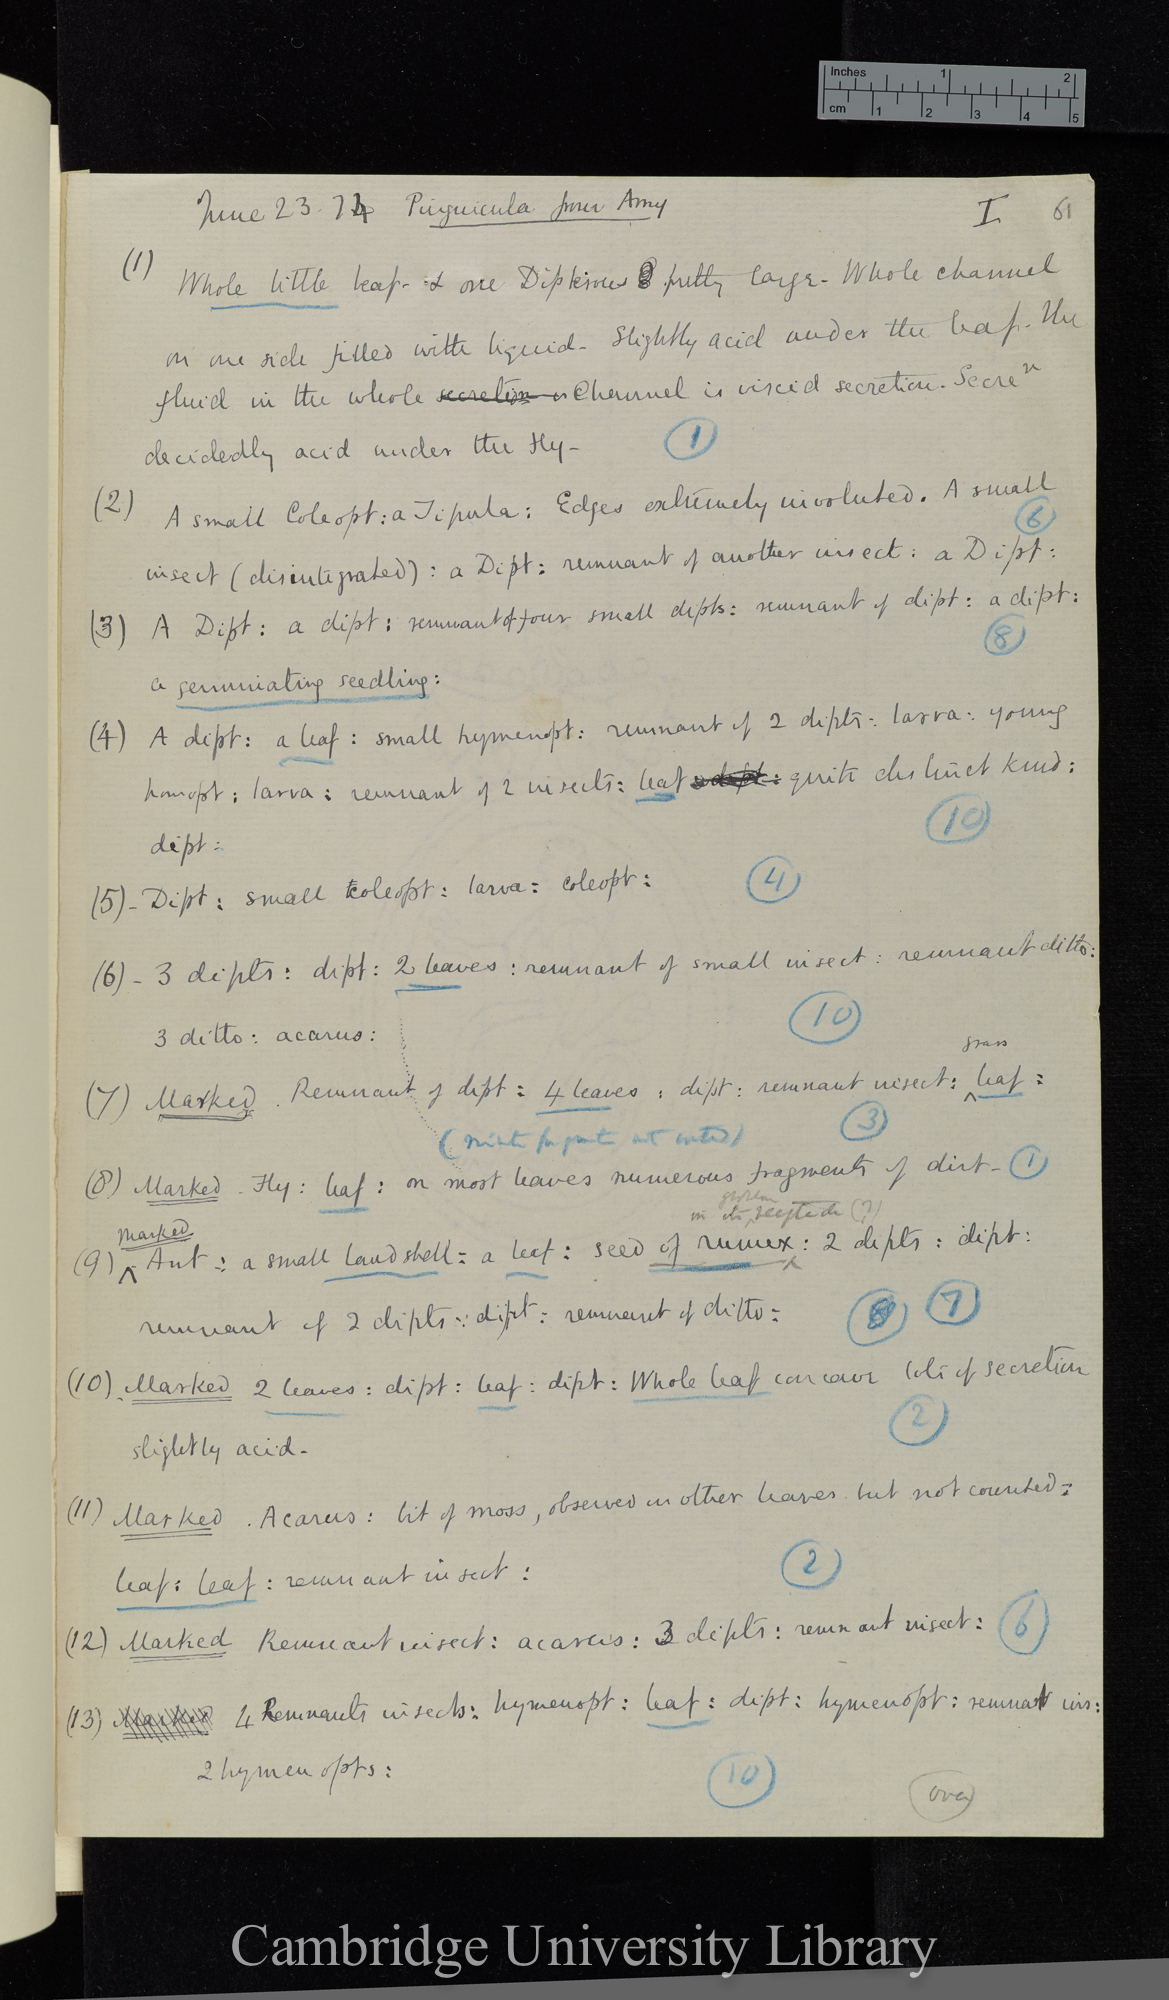 Inches 1 2
cm 1 2 3 4 5
June 23. 74 Pinguicula from Amy I 61
(1) Whole little leaf - & one Dipterous pretty large - Whole channel
on one side filled with liquid - Slightly acid under the leaf. The
fluid in the whole secretion Channel is viscid secretion. Secren
decidedly acid under the fly - 1
(2) A small Coleopt: a Tipula: Edges extremely involuted. A small
6
insect (disintegrated): a Dipt: remnant of another insect: a Dipt:
(3) A Dipt: a dipt: remnant of four small dipts: remnant of dipt: a dipt:
8
a germinating seedling:
(4) A dipt: a leaf: small hymenopt: remnant of 2 dipts: larva: young
homopt: larva: remnant of 2 insects: leaf quite distinct kind:
dipt: 10
(5) - Dipt: small coleopt: larva: coleopt: 4
(6) - 3 dipts: dipt: 2 leaves: remnant of small insect: remnant ditto:
3 ditto: acarus: 10
grass
(7) Marked. Remnant of dipt: 4 leaves: dipt: remnant insect: leaf:
3
(minute fragments not counted)
(8) Marked. Fly: leaf: on most leaves numerous fragments of dirt - 1
in its
Marked
(9) Ant: a small land shell: a leaf: seed of rumex: 2 dipts: dipt:
remnant of 2 dipts: dipt: remnant of ditto: 7
(10) Marked 2 leaves: dipt: leaf: dipt: Whole leaf concave lots of secretion
2
slightly acid -
(11) Marked. Acarus: bit of moss, observed on other leaves but not counted:
leaf: leaf: remnant insect: 2
(12) Marked Remnant insect: acarus: 3 dipts: remnant insect: 6
(13) Marked 4 Remnants insects: hymenopt: leaf: dipt: hymenopt: remnant ins:
2 hymenopts: 10 over
Cambridge University Library